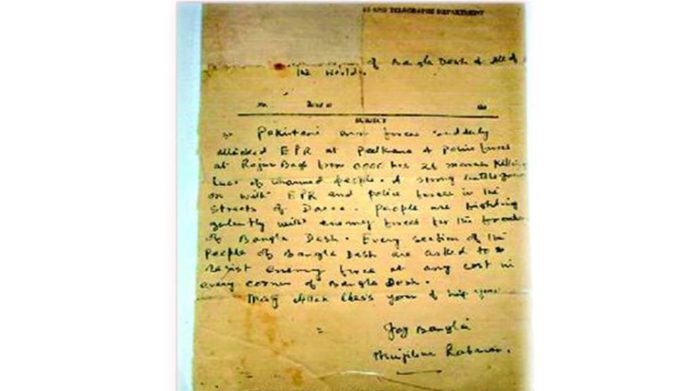 AND TELEGRAPHS DEPARTMENT
of Bangla Desh & All of
the World.
SUBJECT
Pakistani armed forces suddenly
attacked EPR at Peelkhana & Police force
at Rajar Bag from 0000 hrs 26 march killing
lacs of unarmed people. A strong battle going
on with EPR and police forces in the
streets of Dacca. People are fighting
gallantly with enemy forces for the freedom
of Bangla Desh. Every section of the
people of Bangla Desh are asked to
resist enemy force at any cost in
every corner of Bangla Desh.
May Allah bless you & help you
Joy Bangla
Mujibur Rahman.